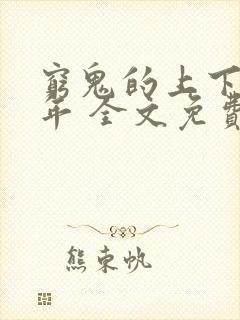 窮鬼的上下
年 全文免費
熊束帆